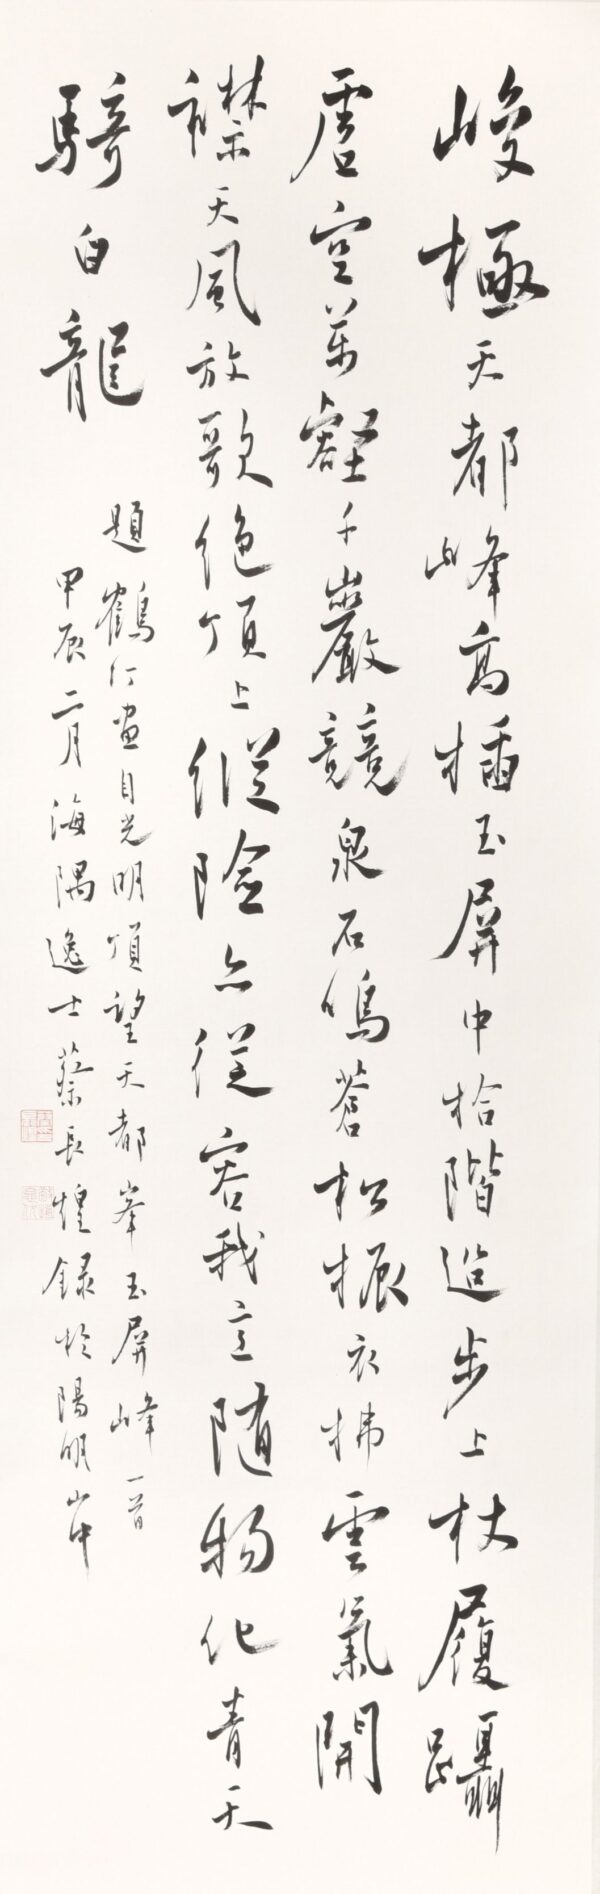 峻極天都峰高插玉屏中拾階造步上杖履躡
虛空萬壑千巖競泉石鳴蒼松振衣拂雲氣開
襟天風放歌絕頂上縱險亦從容我意隨物化青天
騎白龍
題鶴仁畫自光明頂望天都峯玉屏峰一首
甲辰二月海隅逸士蔡長煌錄於陽明山中